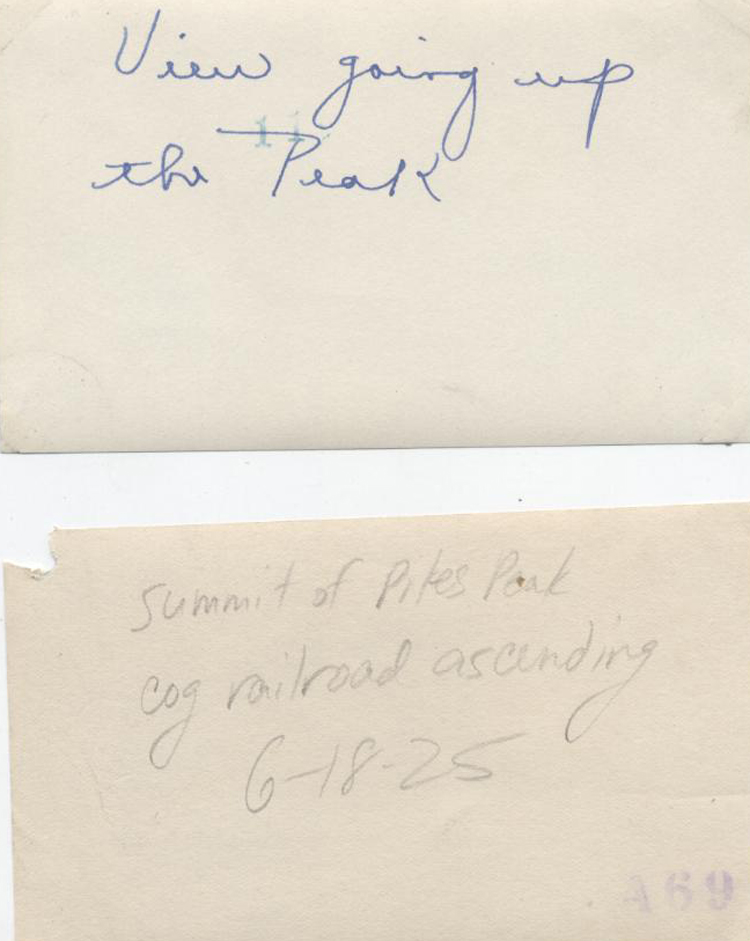 View going up
11
the Peak
summit of Pikes Peak
cog railroad ascending
6-18-25
A69